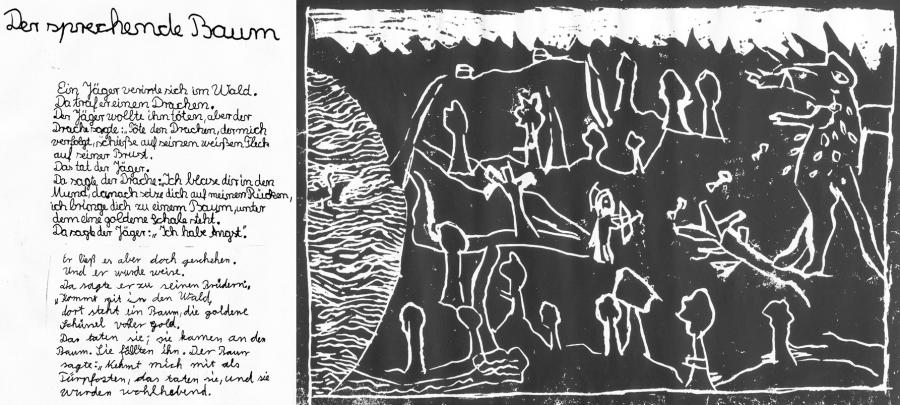 Der sprechende Baum
Ein Jäger verirrte sich im Wald.
Da traf er einen Drachen.
Der Jäger wollte ihn töten, aber der
Drache sagte: „Töte den Drachen, der mich
verfolgt, schieße auf seinen weißen Fleck
auf seiner Brust.
Das tat der Jäger.
Da sagte der Drache: „Ich blase dir in den
Mund, danach setze dich auf meinen Rücken,
ich bringe dich zu einem Baum, unter
dem eine goldene Schale steht.
Da sagte der Jäger: „Ich habe Angst".
Er ließ es aber doch geschehen.
Und er wurde weise.
Da sagte er zu seinen Brüdern,
„kommt mit in den Wald,
dort steht ein Baum, die goldene
Schüssel voller Gold.
Das taten sie; sie kamen an den
Baum. Sie fällten ihn. Der Baum
sagte: „Nehmt mich mit als
Türpfosten, das taten sie, und sie
wurden wohlhabend.